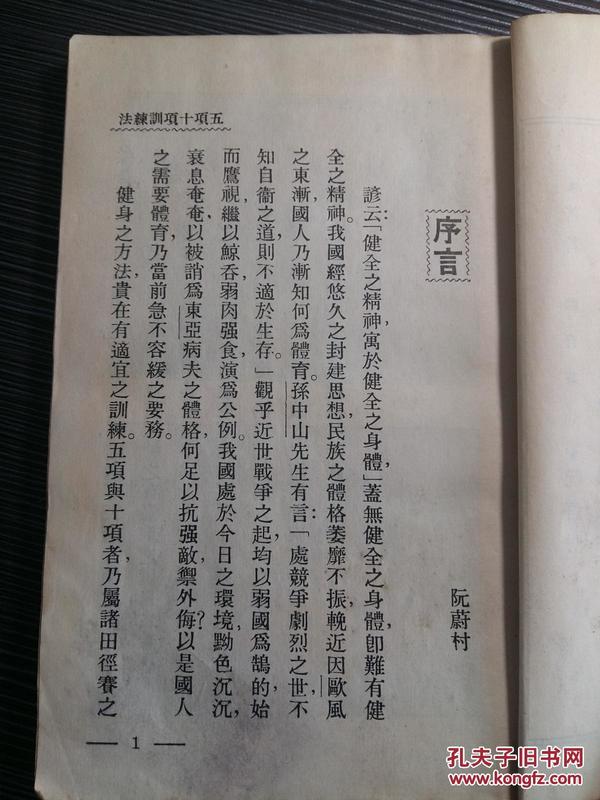 五項十項訓練法
序言
阮蔚村
諺云：「健全之精神，寓於健全之身體，」蓋無健全之身體，卽難有健
全之精神。我國經悠久之封建思想，民族之體格萎靡不振，輓近因歐風
之東漸，國人乃漸知何爲體育。孫中山先生有言：「處競爭劇烈之世，不
知自衞之道，則不適於生存。」觀乎近世戰爭之起，均以弱國爲鵠的，始
而鷹視，繼以鯨吞，弱肉强食，演爲公例。我國處於今日之環境，黝色沉沉，
衰息奄奄，以被誚爲東亞病夫之體格，何足以抗强敵，禦外侮？以是國人
之需要體育，乃當前急不容緩之要務。
健身之方法，貴在有適宜之訓練。五項與十項者，乃屬諸田徑賽之
— 1 —
孔夫子旧书网
www.kongfz.com